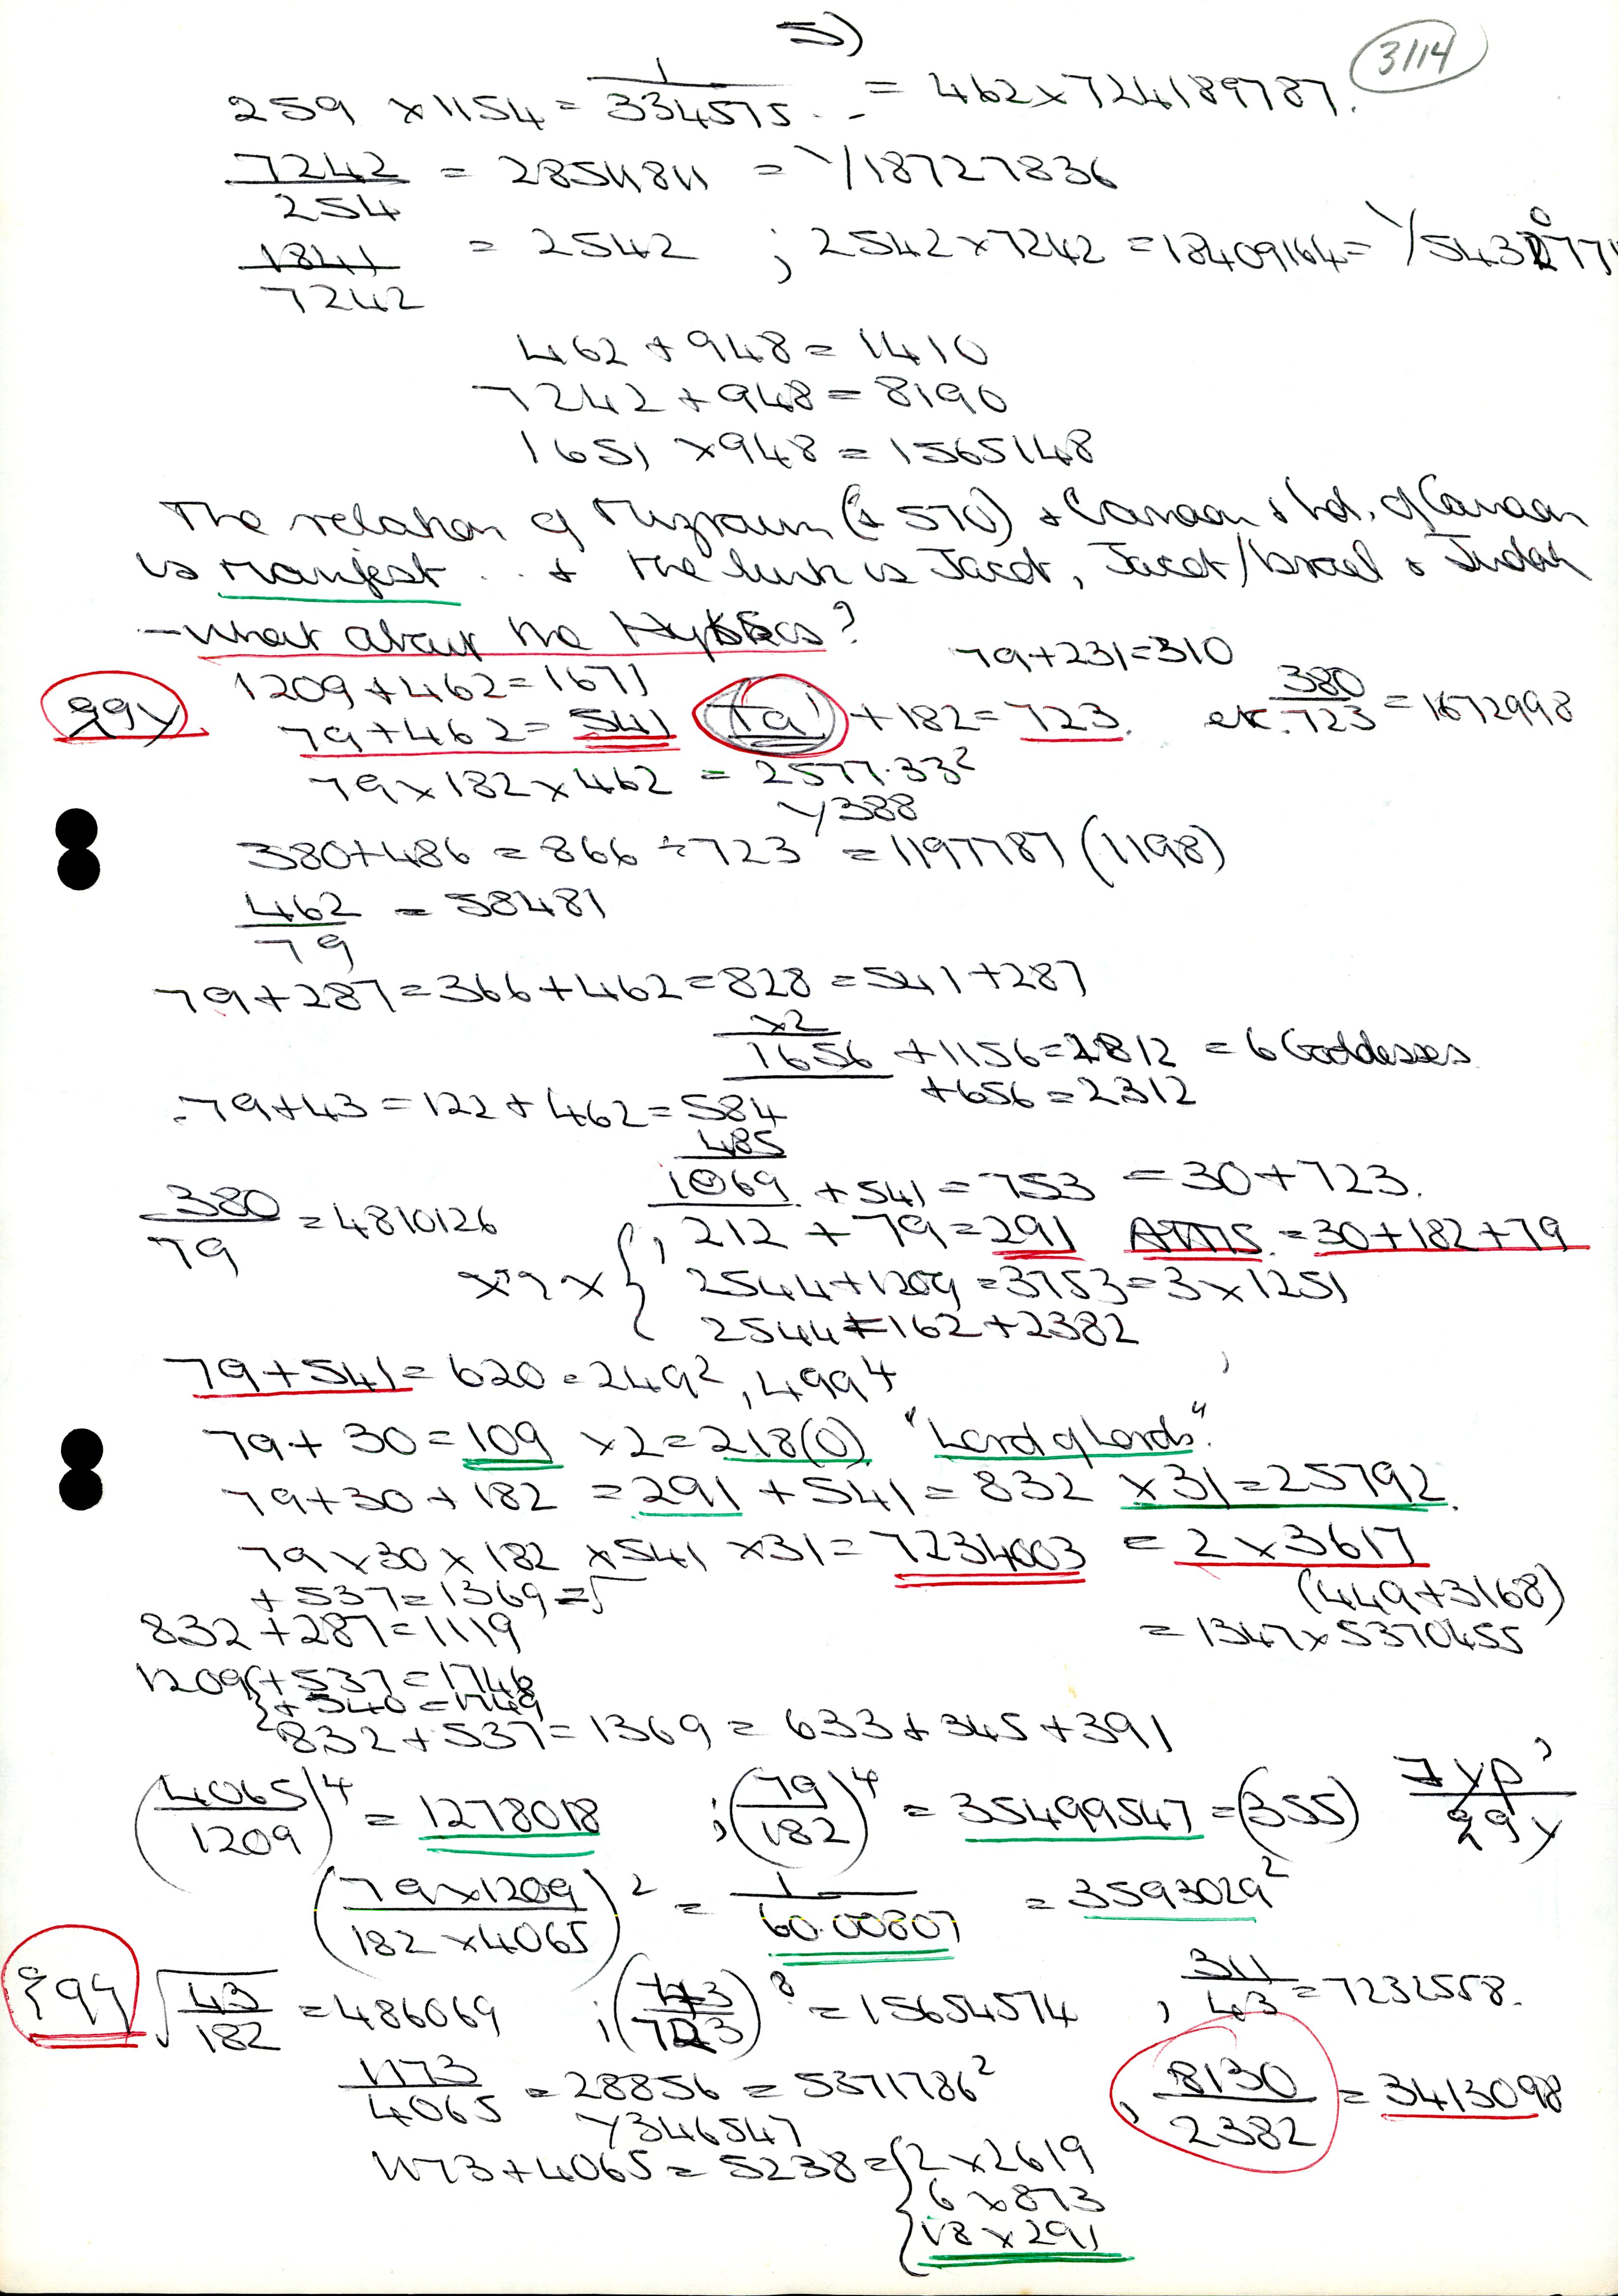 5)
3114
259 x 1154 = 1/334575.. = 462 x 724189787.
7242/254 = 28511811 = Y18727836
1841/7242 = 2542 ; 2542 x 7242 = 18409164 =
462 + 948 = 1410
7242 + 948 = 8190
1651 x 948 = 1565148
The relation of Mizraim (+ 570) + Canaan + Ld. of Canaan
is manifest .. + the link is Jacob, Jacob/Israel & Judah
- what about the Hyksos?
79 + 231 = 310
1209 + 462 = 1671
79 + 462 = 541 + 182 = 723. etc. 380/723 = 1672998
79 x 182 x 462 = 2577.33²
Y388
380 + 486 = 866 ÷ 723 = 1197787 (1198)
462/79 = 58481
79 + 287 = 366 + 462 = 828 = 541 + 287
x2
1656 + 1156 = 2812 = 6 Goddesses
+ 656 = 2312
79 + 43 = 122 + 462 = 584
485
1069 + 541 = 753 = 30 + 723.
380/79 = 4810126
; 212 + 79 = 291 = 30 + 182 + 79
2544 + 1209 = 3753 = 3 x 1251
2544 = 162 + 2382
79 + 541 = 620 = 249², 499⁴
79 + 30 = 109 x 2 = 218(0) "Lord of Lords".
79 + 30 + 182 = 291 + 541 = 832 x 31 = 25792.
79 x 30 x 182 x 541 x 31 = 7234003 = 2 x 3617
(449 + 3168)
+ 537 = 1369 = √
832 + 287 = 1119
= 1347 x 5370455
1209 { + 537 = 1746
+ 540 = 1749
832 + 537 = 1369 = 633 + 345 + 391
(4065/1209)⁴ = 1278018 ; (79/182)⁴ = 35499547 = (355)
(79 x 1209/182 x 4065)² = 1/60.00807 = 3593029²
√43/182 = 486069 = 15654574 , 311/43 = 7232558.
1173/4065 = 28856 = 5371786² , 8130/2382 = 3413098
Y346547
1173 + 4065 = 5238 = { 2 x 2619
6 x 873
18 x 291